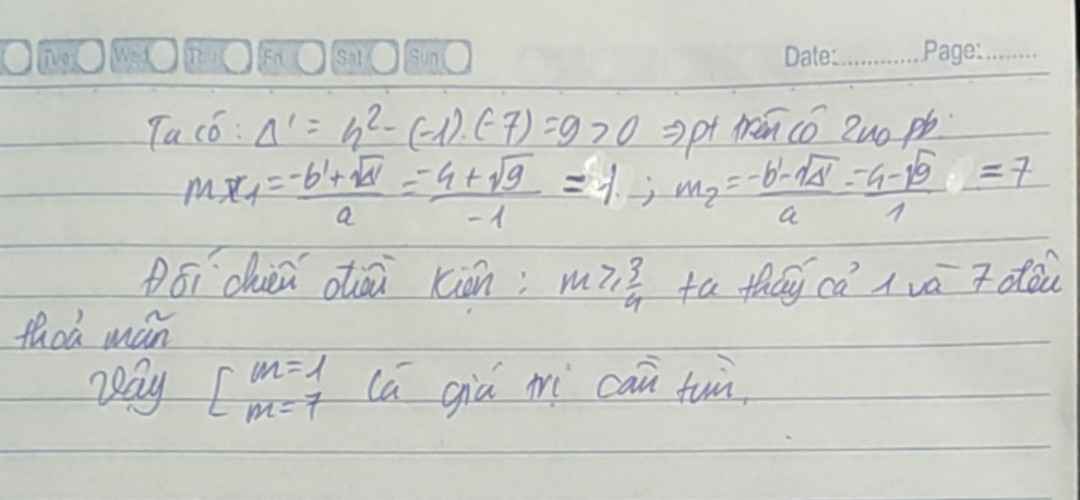 Tue Wed Thu Fri Sat Sun Date:............. Page:........
Ta có: Δ' = 4² - (-1).(-7) = 9 > 0 ⇒ pt trên có 2 no pb.
m₁ = (-b' + √Δ')/a = (-4 + √9)/-1 = 1 ; m₂ = (-b' - √Δ')/a = (-4 - √9)/1 = 7
Đối chiếu điều kiện: m ≥ 3/4 ta thấy cả 1 và 7 đều
thoả mãn
Vậy [ m = 1
m = 7 là giá trị cần tìm.